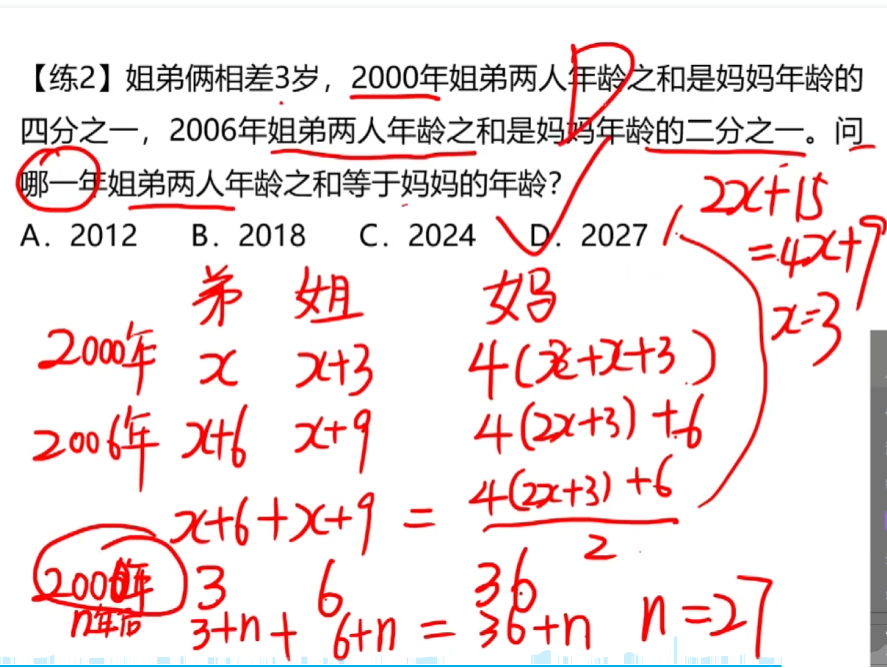 【练2】姐弟俩相差3岁，2000年姐弟两人年龄之和是妈妈年龄的
四分之一，2006年姐弟两人年龄之和是妈妈年龄的二分之一。问
哪一年姐弟两人年龄之和等于妈妈的年龄?
A. 2012 B. 2018 C. 2024 D. 2027
D
2x+15
=4x+9
x=3
弟 姐 妈
2000年 x x+3 4(x+x+3)
2006年 x+6 x+9 4(2x+3)+6
x+6+x+9 = 4(2x+3)+6
2
2000年 3 6 36
n年后 3+n + 6+n = 36+n n=27